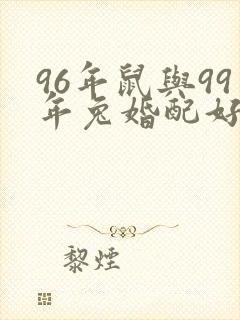 96年鼠與99
年兔婚配好
黎煙